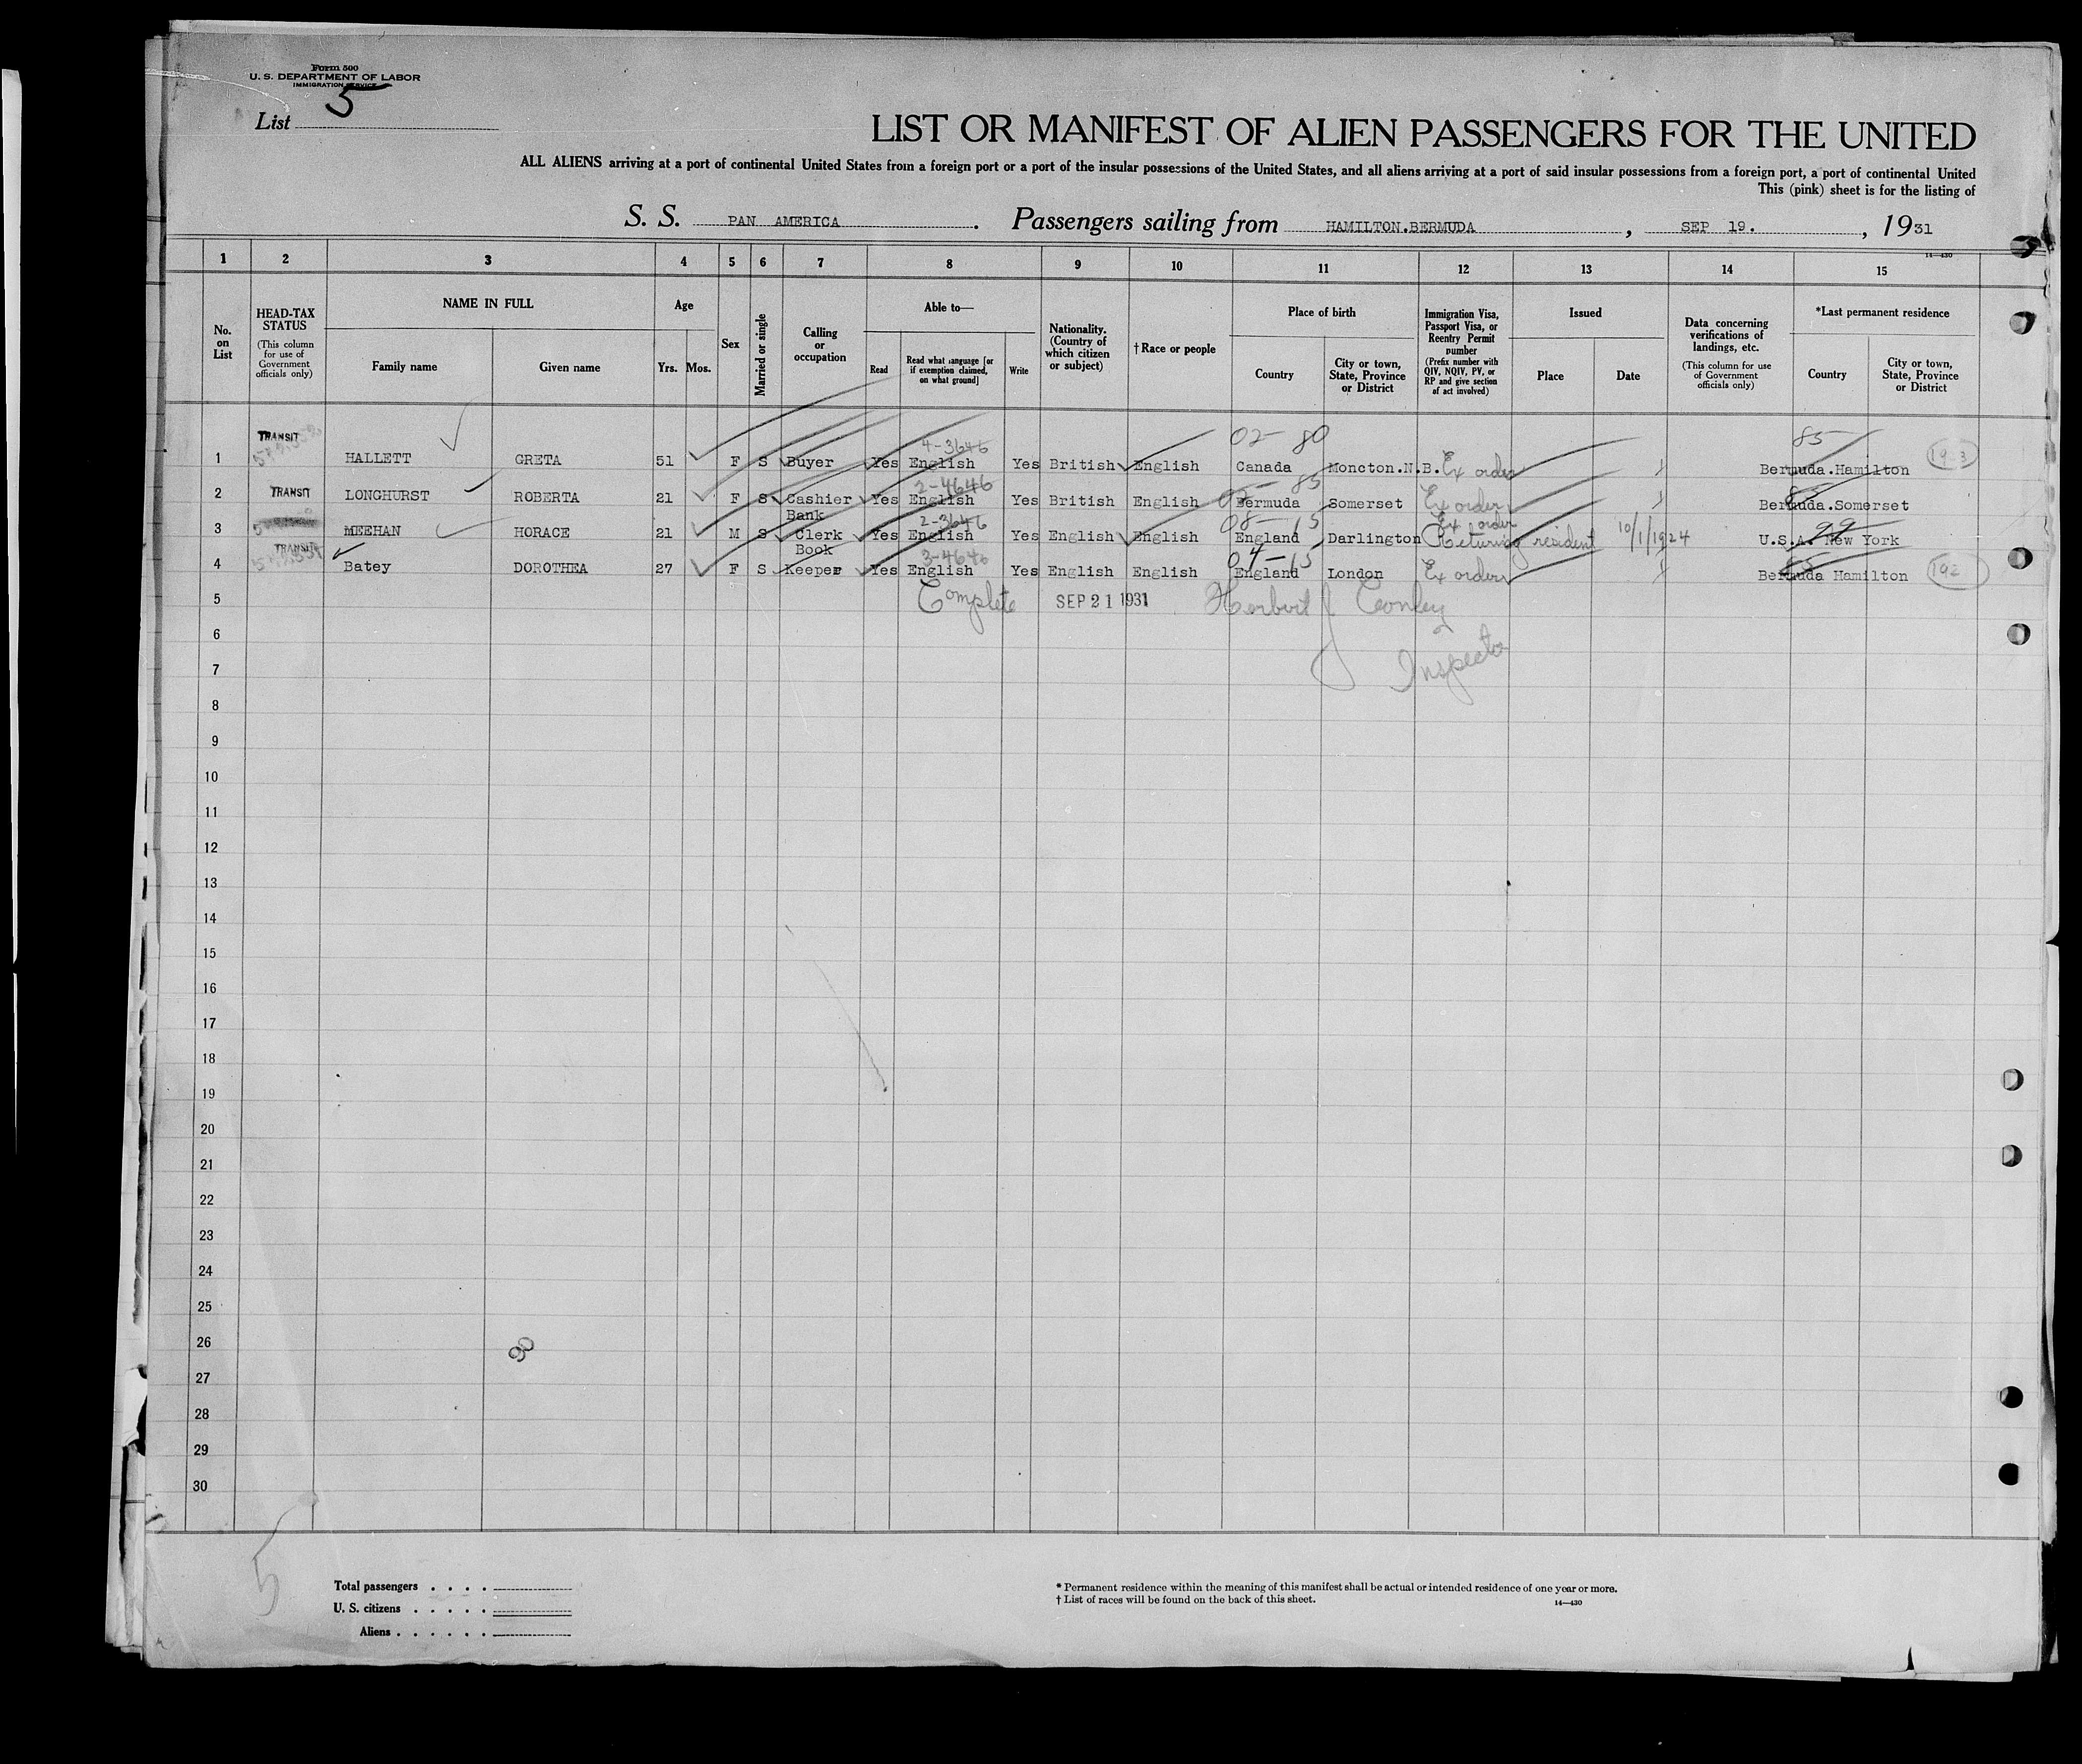 Form 500
U. S. DEPARTMENT OF LABOR
IMMIGRATION SERVICE
List 5
LIST OR MANIFEST OF ALIEN PASSENGERS FOR THE UNITED
ALL ALIENS arriving at a port of continental United States from a foreign port or a port of the insular possessions of the United States, and all aliens arriving at a port of said insular possessions from a foreign port, a port of continental United
This (pink) sheet is for the listing of
S. S. PAN AMERICA. Passengers sailing from HAMILTON.BERMUDA, SEP 19., 1931
14—430
1 2 3 4 5 6 7 8 9 10 11 12 13 14 15
No. on List
HEAD-TAX STATUS
(This column for use of Government officials only)
NAME IN FULL
Family name
Given name
Age
Yrs. Mos.
Sex
Married or single
Calling or occupation
Able to—
Read
Read what language [or if exemption claimed, on what ground]
Write
Nationality. (Country of which citizen or subject)
† Race or people
Place of birth
Country
City or town, State, Province or District
Immigration Visa, Passport Visa, or Reentry Permit number
(Prefix number with QIV, NQIV, PV, or RP and give section of act involved)
Issued
Place
Date
Data concerning verifications of landings, etc.
(This column for use of Government officials only)
*Last permanent residence
Country
City or town, State, Province or District
TRANSIT 4-3646 02-80 85
1 HALLETT GRETA 51 F S Buyer Yes English Yes British English Canada Moncton.N.B. Ex order Bermuda.Hamilton
2-4646 85
2 TRANSIT LONGHURST ROBERTA 21 F S Cashier Yes English Yes British English Bermuda Somerset Ex order Bermuda.Somerset
Bank 2-3646 08-15 Ex order
3 MEEHAN HORACE 21 M S Clerk Yes English Yes English English England Darlington Returning resident 10/1/1924 U.S.A. New York 99
TRANSIT Book 3-4646 04-15
4 Batey DOROTHEA 27 F S Keeper Yes English Yes English English England London Ex order Bermuda Hamilton
5 Complete SEP 21 1931 Herbert J Conley
6
Inspector
7
8
9
10
11
12
13
14
15
16
17
18
19
20
21
22
23
24
25
26
27
28
29
30
5
Total passengers . . . .
U. S. citizens . . . . .
Aliens . . . . . .
* Permanent residence within the meaning of this manifest shall be actual or intended residence of one year or more.
† List of races will be found on the back of this sheet.
14—430